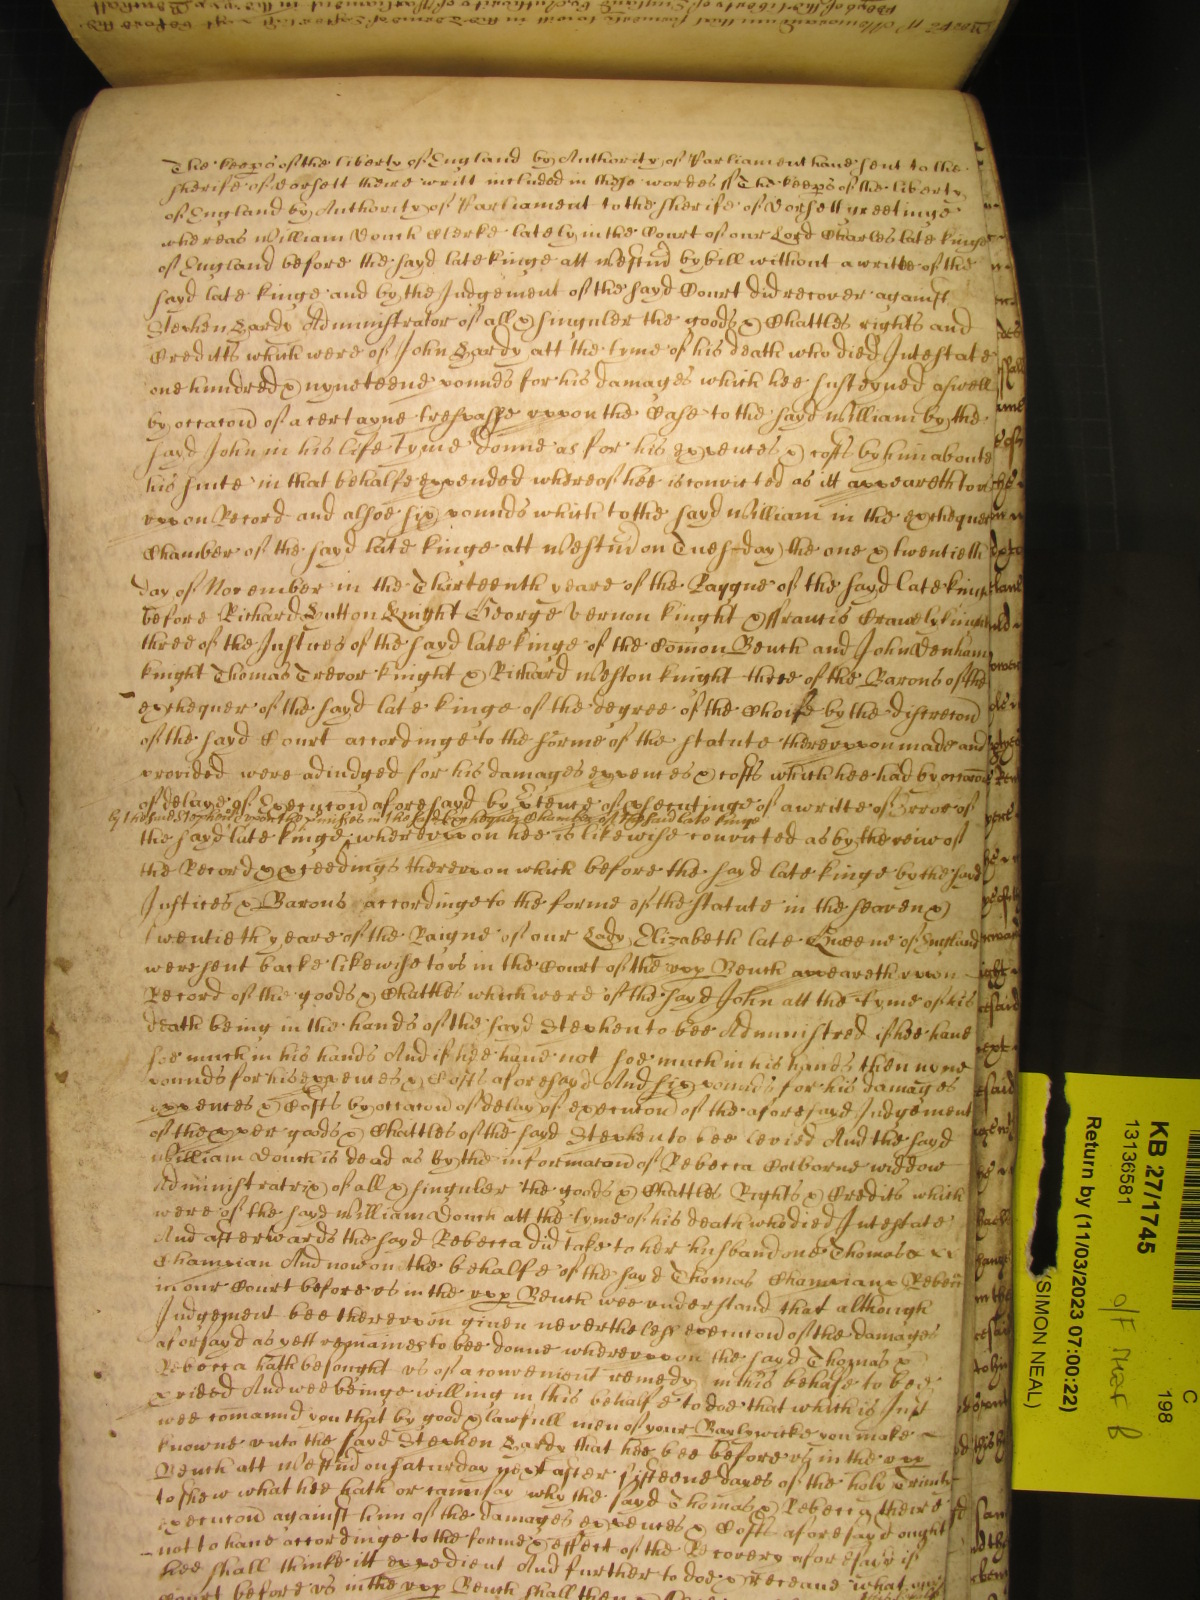 The keeps of the liberty of England by Authority of Parliament have sent to the
sherife of Dorsett theire writt included in these wordes ss The keeps of the liberty
of England by Authority of Parliament to the sherife of Dorsett greetinge
whereas William Douch Clerke lately in the Court of our Lord Charles late kinge
of England before the sayd late kinge att Westm by bill without a writte of the
sayd late kinge and by the Judgement of the sayd Court did recover against
Stephen Hardy Administrator of all & singuler the goods & Chattles rights and
Creditts which were of John Hardy att the tyme of his death who died Intestate
one hundred & nyneteene pounds for his damages which hee susteyned aswell
by occacon of a certayne trespasse uppon the Case to the sayd William by the
sayd John in his life tyme donne as for his expences & costs by him aboute
his suite in that behalfe expended whereof hee is convicted as itt appeareth to us
uppon Record and alsoe six pounds which to the sayd William in the exchequer
Chamber of the sayd late kinge att Westm on Tues-day the one & twentieth
day of November in the Thirteenth yeare of the Raygne of the sayd late kinge
before Richard Hutton Knight George Vernon knight & ffrancis Crawly knight
three of the Justices of the sayd late kinge of the Comon Bench and John Denham
knight Thomas Trevor knight & Richard Weston knight three of the Barons of the
exchequer of the sayd late kinge of the degree of the Choife by the discrecon
of the sayd Court accordinge to the forme of the statute thereuppon made and
provided were adiudged for his damages expences & costs which hee had by occacon
of delaye of Execucon aforesayd by prtence of psecutinge of a writte of Error of
by the sd Stephen upon the pmisses in the sayd Exchequer Chamber of the said late kinge
the sayd late kinge whereuppon hee is likewise convicted as by the veiw of
the Record & pceedings thereuppon which before the sayd late kinge by the sayd
Justices & Barons accordinge to the forme of the statute in the seaven &
twentieth yeare of the Raigne of our Lady Elizabeth late Queene of England
were sent backe likewise to us in the Court of the upp Bench appeareth uppon
Record of the goods & Chattles which were of the sayd John att the tyme of his
death being in the hands of the sayd Stephen to bee Administred if hee have
soe much in his hands And if hee have not soe much in his hands then nyne
pounds for his expences & Costs aforesayd And six pounds for his damages
expences & Costs by occacon of delay of execucon of the aforesayd Judgement
of the pper goods & Chattles of the sayd Stephen to bee levied And the sayd
William Douch is dead as by the informacon of Rebecca Colborne widdow
Administratrix of all & singuler the goods & Chattles Rights & Credits which
were of the sayd William Douch att the tyme of his death who died Intestate
And afterwards the sayd Rebecca did take to her husband one Thomas
Champian And now on the behalfe of the sayd Thomas Champian & Rebecca
in our Court before us in the upp Bench wee understand that although
Judgement bee thereuppon given neverthelesse execucon of the damages
aforsayd as yett remaines to bee donne whereuppon the sayd Thomas &
Rebecca hath besought us of a convenient remedy in his behalfe to bee
pvided And wee beinge willing in this behalfe to doe that which is Just
wee comannd you that by good & lawfull men of your Baylywicke you make
knowne unto the sayd Stephen Hardy that hee bee before us in the upp
Bench att Westm on Saturday next after fifteene dayes of the holy Trinity
to shew what hee hath or can say why the sayd Thomas & Rebecca theire
execucon against him of the damages expences & Costs aforesayd ought
not to have accordinge to the forme & effect of the Recovery aforesayd if
hee shall thinke itt expedient And further to doe & receave what our
Court before us in the upp Bench shall then
KB 27/1745
13136581
C
198
o/F mat b
Return by (11/03/2023 07:00:22)
(SIMON NEAL)